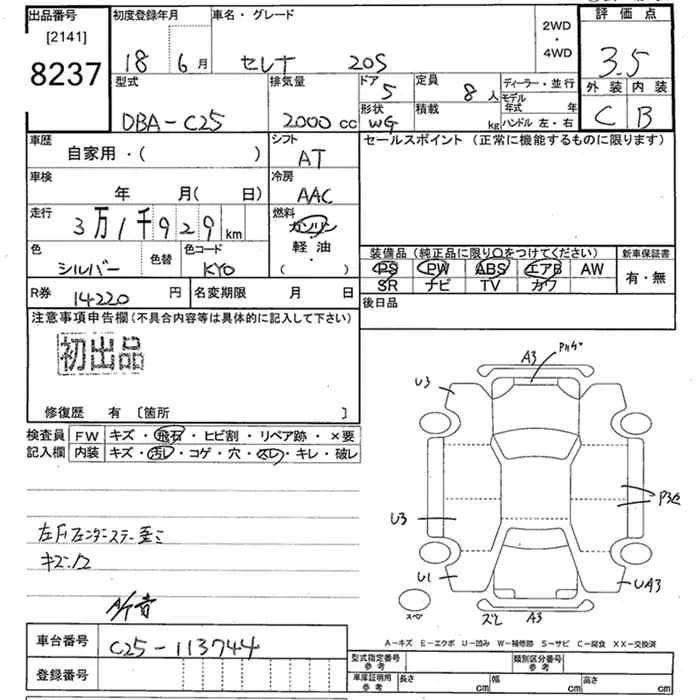 出品番号
[2141]
8237
初度登録年月
18 6月
車名・グレード
セレナ 20S
2WD
・
4WD
評価点
3.5
外装 内装
C B
型式
DBA-C25
排気量
2000cc
ドア
5
定員
8人
形状
WG
積載
kg
ディーラー・並行
モデル年式 年
ハンドル 左・右
車歴
自家用・( )
シフト
AT
セールスポイント(正常に機能するものに限ります)
車検
年 月( 日)
冷房
AAC
走行
3万1千929km
燃料
ガソリン
軽油
・( )
色
シルバー
色替
色コード
KY0
装備品(純正品に限り○をつけてください)
PS PW ABS エアB AW
SR ナビ TV カワ
新車保証書
有・無
R券 14220円
名変期限 月 日
後日品
注意事項申告欄(不具合内容等は具体的に記入して下さい)
初出品
修復歴 有 〔箇所 〕
検査員記入欄
FW キズ・飛石・ヒビ割・リペア跡・×要
内装 キズ・汚レ・コゲ・穴・スレ・キレ・破レ
キズ
A3
U3
U3
U1
UA3
A3
スペア
A-キズ E-エクボ U-凹み W-補修跡 S-サビ C-腐食 XX-交換済
車台番号
C25-113744
登録番号
型式指定番号
参考
類別区分番号
参考
車庫証明用
参考
長さ cm
幅 cm
高さ cm